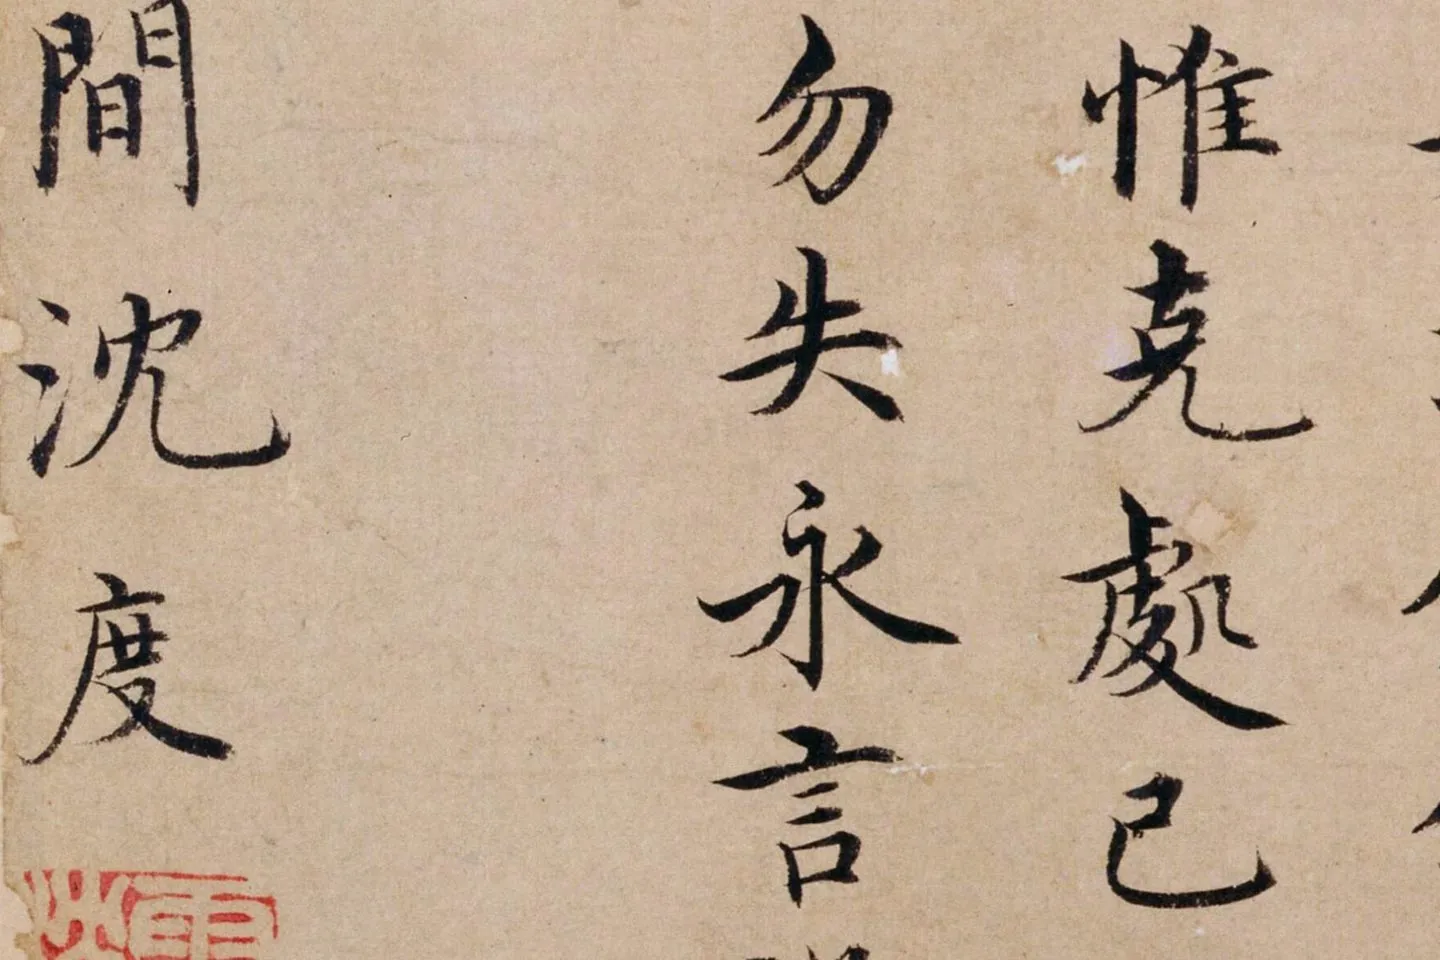 惟克處己
勿失永言
間沈度